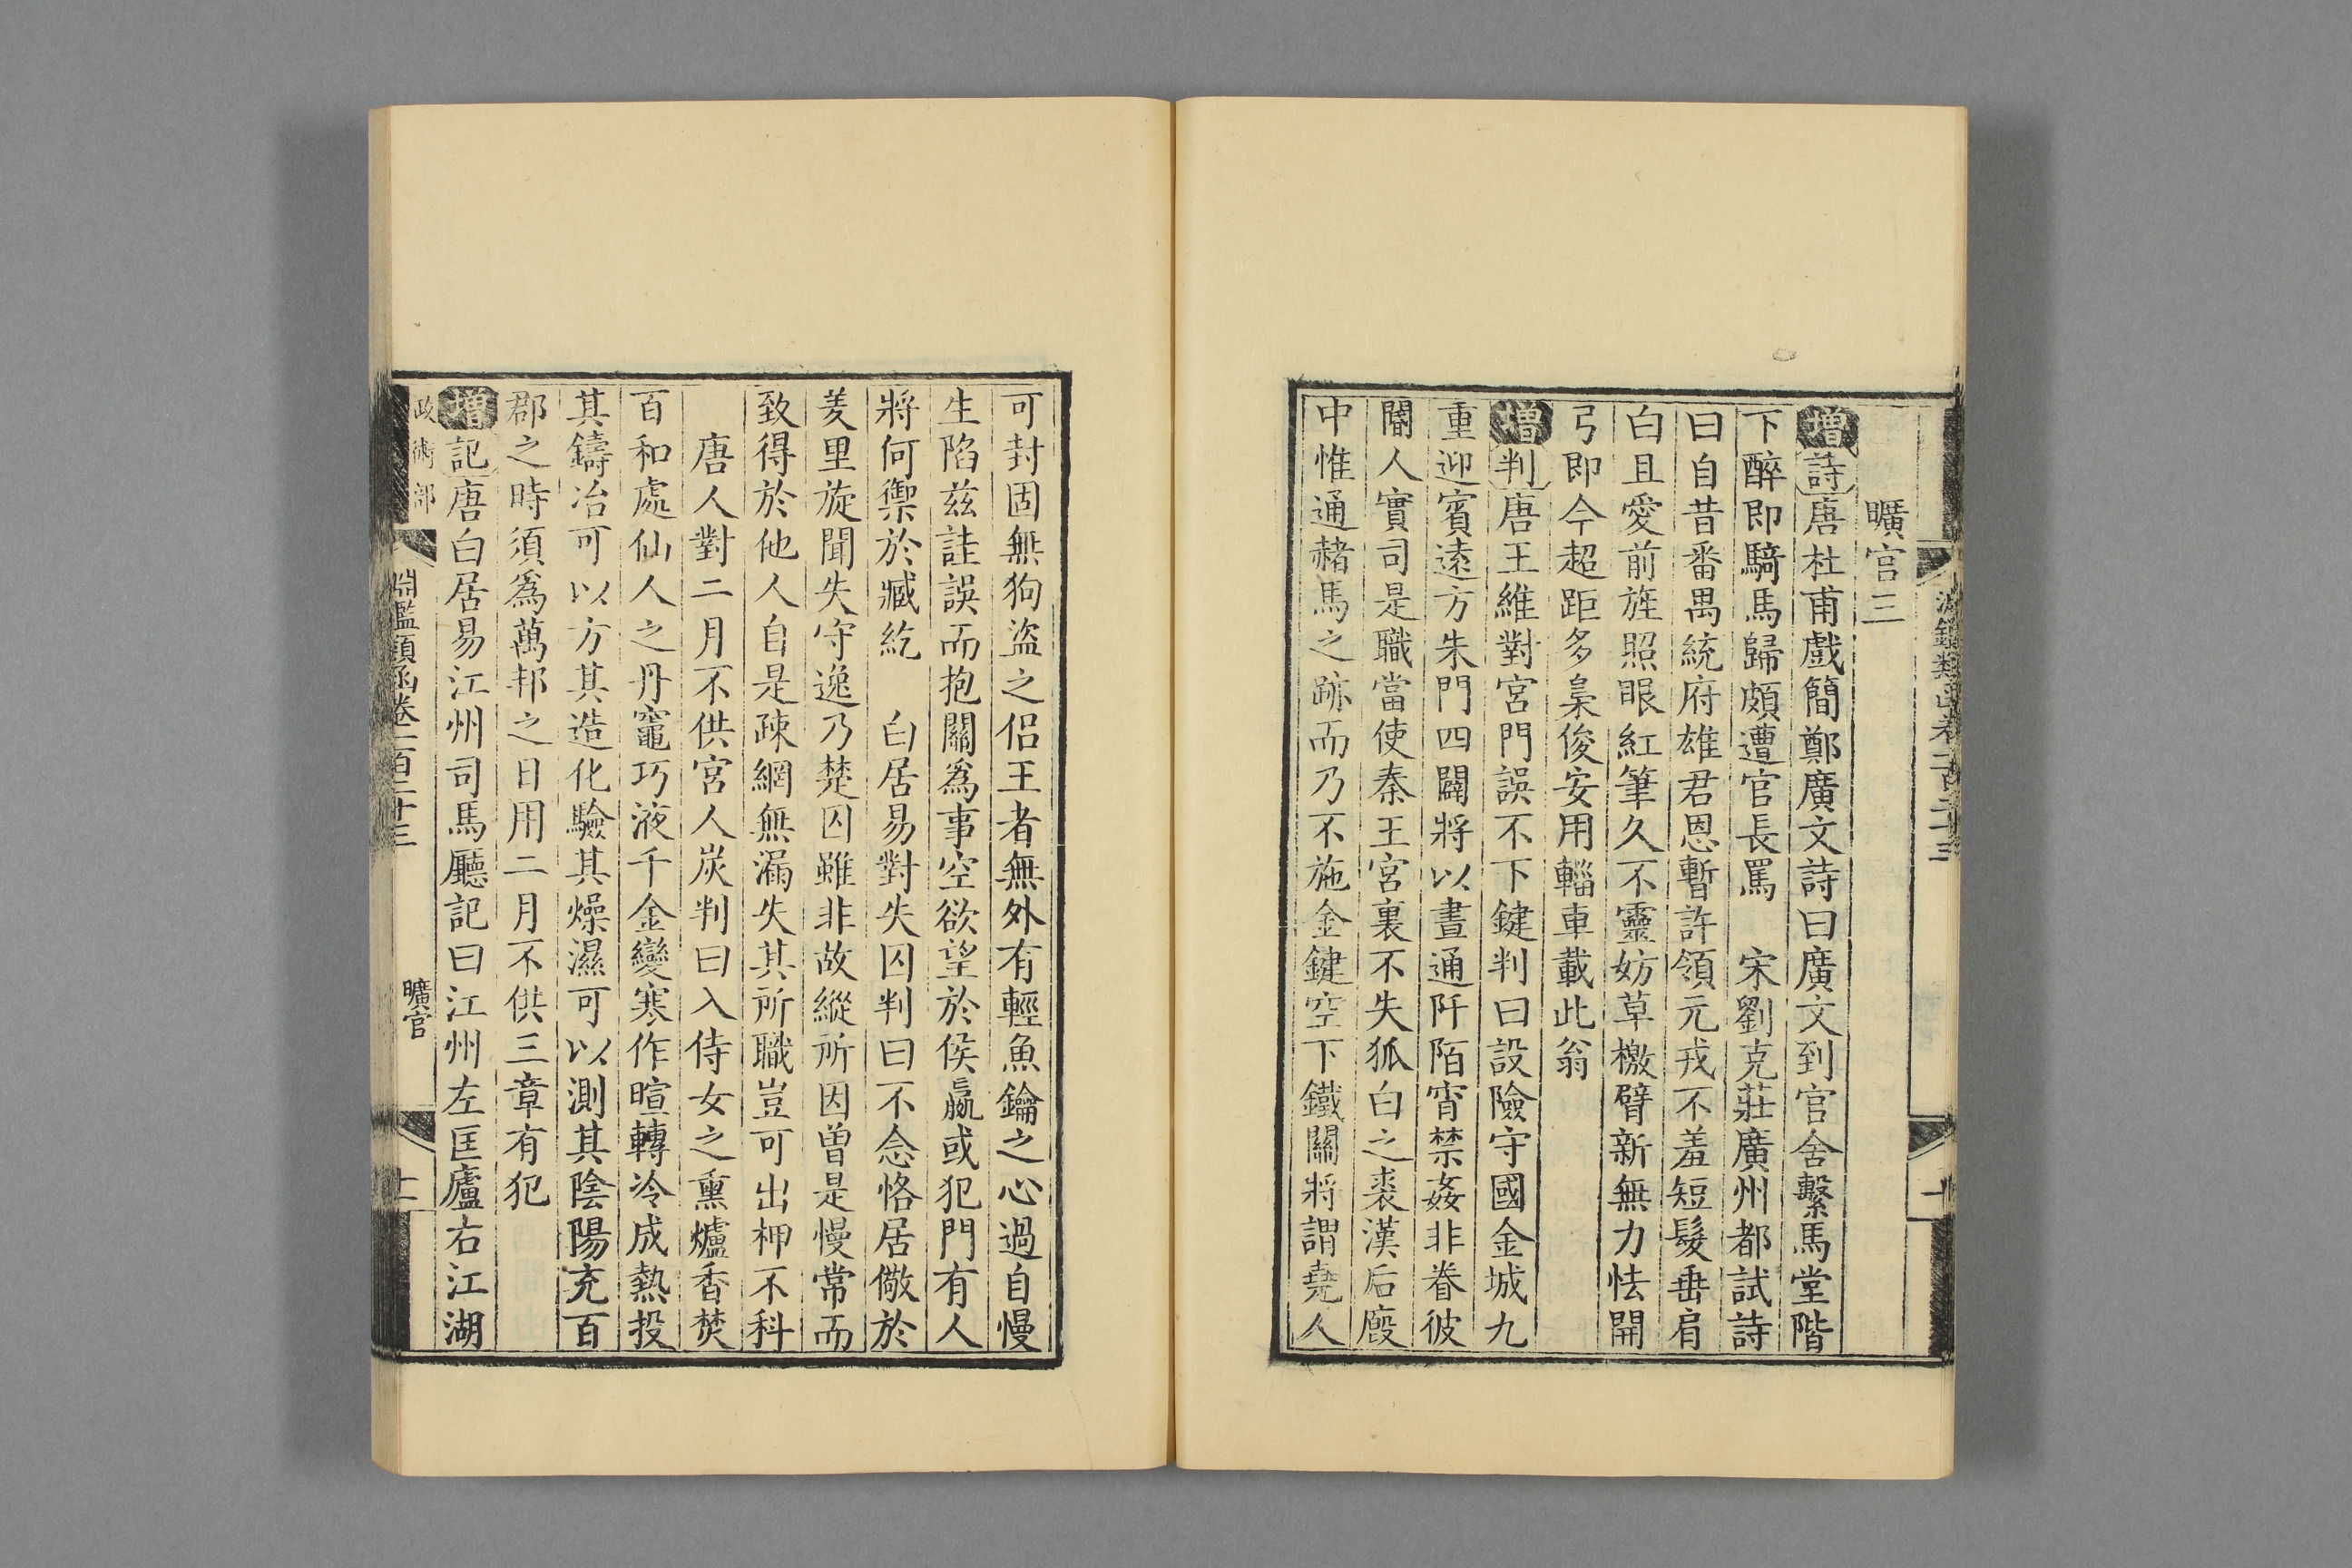 曠官三
增詩唐杜甫戲簡鄭廣文詩曰廣文到官舍繫馬堂階
下醉即騎馬歸頗遭官長罵　宋劉克莊廣州都試詩
曰自昔番禺統府雄君恩暫許領元戎不羞短髮垂肩
白且愛前旌照眼紅筆久不靈妨草檄臂新無力怯開
弓即今超距多梟俊安用輜車載此翁
增判唐王維對宮門誤不下鍵判曰設險守國金城九
重迎賓遠方朱門四闢將以晝通阡陌宵禁姦非眷彼
閽人實司是職當使秦王宮裏不失狐白之裘漢后廏
中惟通赭馬之跡而乃不施金鍵空下鐵關將謂堯人
可封固無狗盜之侶王者無外有輕魚鑰之心過自慢
生陷茲詿誤而抱關爲事空欲望於侯嬴或犯門有人
將何禦於臧紇　白居易對失囚判曰不念恪居儆於
羑里旋聞失守逸乃楚囚雖非故縱所因曾是慢常而
致得於他人自是疎網無漏失其所職豈可出柙不科
唐人對二月不供宮人炭判曰入侍女之熏爐香焚
百和處仙人之丹竈巧液千金變寒作暄轉冷成熱投
其鑄冶可以方其造化驗其燥濕可以測其陰陽充百
郡之時須爲萬邦之日用二月不供三章有犯
增記唐白居易江州司馬廳記曰江州左匡廬右江湖
政術部
淵鑑類函卷一百二十三
曠官
十二